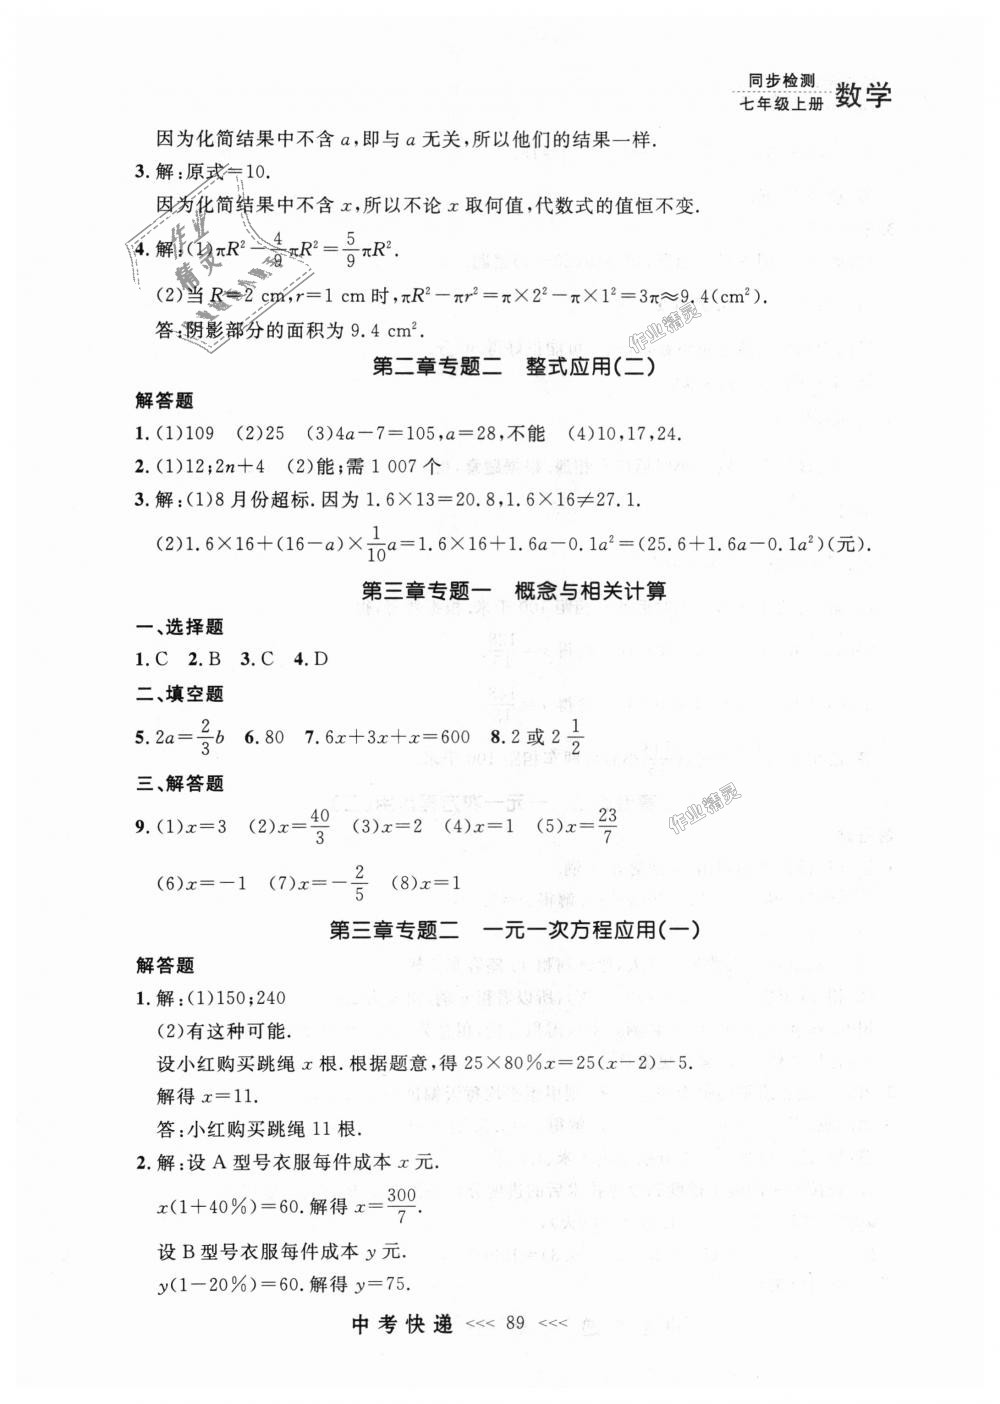 同步检测
七年级上册 数学
因为化简结果中不含 a,即与 a 无关,所以他们的结果一样.
3. 解:原式=10.
因为化简结果中不含 x,所以不论 x 取何值,代数式的值恒不变.
4. 解:(1)πR²-4/9πR²=5/9πR².
(2)当 R=2 cm,r=1 cm 时,πR²-πr²=π×2²-π×1²=3π≈9.4(cm²).
答:阴影部分的面积为 9.4 cm².
第二章专题二 整式应用(二)
解答题
1. (1)109 (2)25 (3)4a-7=105,a=28,不能 (4)10,17,24.
2. (1)12;2n+4 (2)能;需 1 007 个
3. 解:(1)8 月份超标.因为 1.6×13=20.8,1.6×16≠27.1.
(2)1.6×16+(16-a)×1/10a=1.6×16+1.6a-0.1a²=(25.6+1.6a-0.1a²)(元).
第三章专题一 概念与相关计算
一、选择题
1. C 2. B 3. C 4. D
二、填空题
5. 2a=2/3b 6. 80 7. 6x+3x+x=600 8. 2 或 2 1/2
三、解答题
9. (1)x=3 (2)x=40/3 (3)x=2 (4)x=1 (5)x=23/7
(6)x=-1 (7)x=-2/5 (8)x=1
第三章专题二 一元一次方程应用(一)
解答题
1. 解:(1)150;240
(2)有这种可能.
设小红购买跳绳 x 根.根据题意,得 25×80%x=25(x-2)-5.
解得 x=11.
答:小红购买跳绳 11 根.
2. 解:设 A 型号衣服每件成本 x 元.
x(1+40%)=60.解得 x=300/7.
设 B 型号衣服每件成本 y 元.
y(1-20%)=60.解得 y=75.
中考快递 <<< 89 <<<
作业精灵
作业精灵
作业精灵